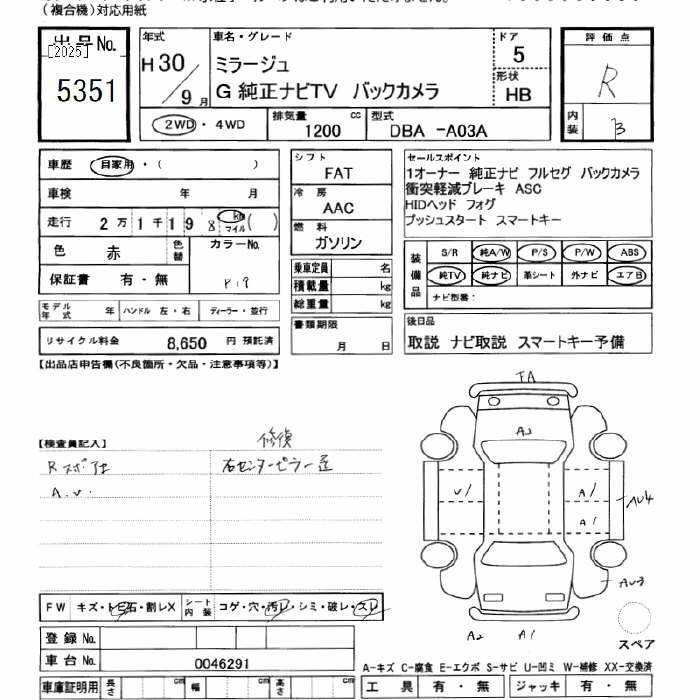 (複合機)対応用紙
出品No.
[2025]
5351
年式
H30
/9月
車名・グレード
ミラージュ
G 純正ナビTV バックカメラ
ドア
5
形状
HB
2WD・4WD
排気量
1200 cc
型式
DBA -A03A
評価点
R
内装
B
車歴 自家用・( )
車検 年 月
走行 2万1千198 km マイル ( )
色 赤 色替 カラーNo.
保証書 有・無 P19
モデル年式 年 ハンドル 左・右 ディーラー・並行
リサイクル料金 8,650 円 預託済
シフト
FAT
冷房
AAC
燃料
ガソリン
乗車定員 名
積載量 kg
総重量 kg
書類期限
月 日
セールスポイント
1オーナー 純正ナビ フルセグ バックカメラ
衝突軽減ブレーキ ASC
HIDヘッド フォグ
プッシュスタート スマートキー
装備品
S/R 純A/W P/S P/W ABS
純TV 純ナビ 革シート 外ナビ エアB
ナビ型番:
後日品
取説 ナビ取説 スマートキー予備
【出品店申告欄(不良箇所・欠品・注意事項等)】
【検査員記入】
修復
右センターピラー
A.U.
FA
A2
U1
A1
A1
AU4
AU3
A2
A1
スペア
FW キズ・トビ石・割レX
シート内装 コゲ・穴・汚レ・シミ・破レ・スレ
登録No.
車台No. 0046291
車庫証明用 長さ cm 幅 cm 高さ cm
A-キズ C-腐食 E-エクボ S-サビ U-凹ミ W-補修 XX-交換済
工具 有・無 ジャッキ 有・無